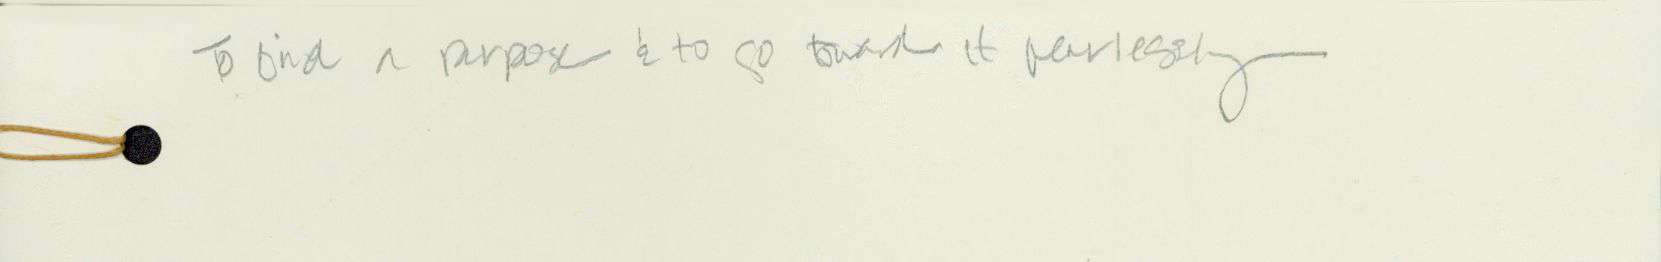 To find a purpose & to go toward it fearlessly